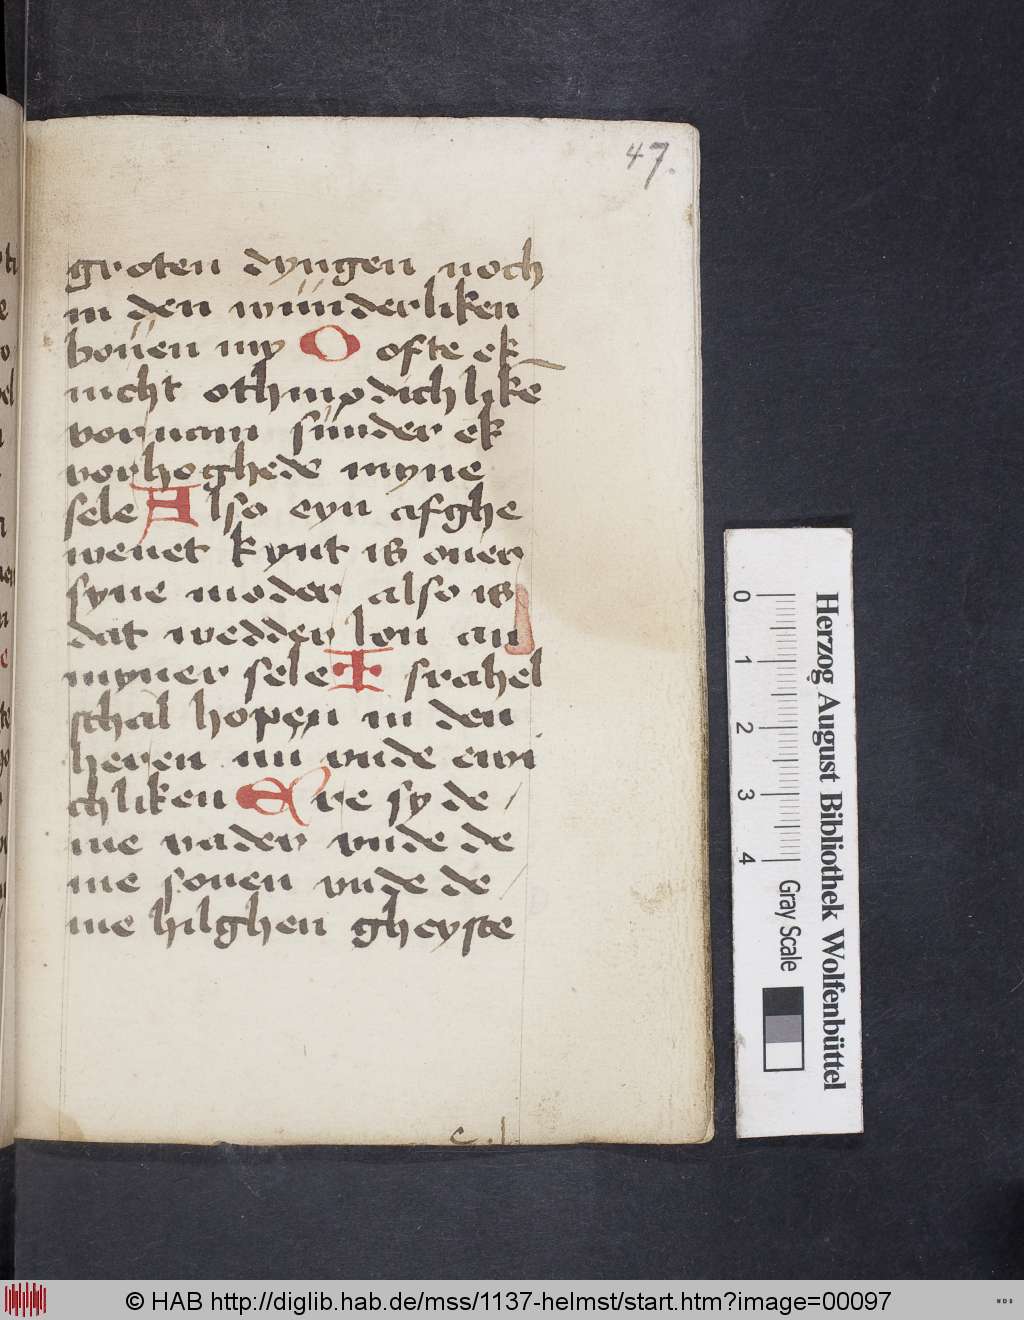 47.
groten dyngen noch
in den wu̎nderliken
bou̎en my O ofte ek
nicht othmodichlikē
vornam su̎nder ek
vorhoghede myne
sele Also eyn afghe
wenet kynt is ouer
syne moder also is
dat wedder lon an
myner sele Israhel
schal hopen in den
heren nu vnde ewi
chliken Ere sy de
me vader vnde de
me sonen vnde de
me hilghen gheyste
0 1 2 3 4
Gray Scale
Herzog August Bibliothek Wolfenbüttel
© HAB http://diglib.hab.de/mss/1137-helmst/start.htm?image=00097